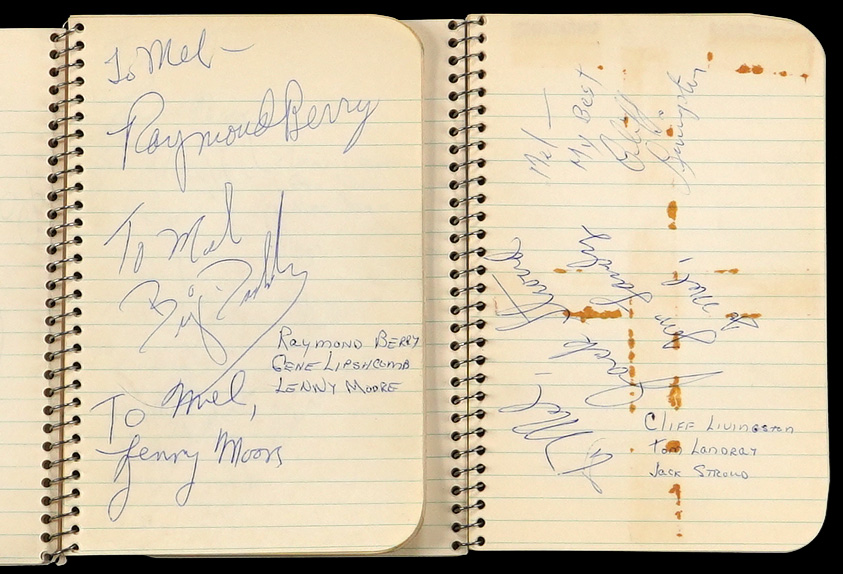 To Mel —
Raymond Berry
To Mel
Big Daddy
RAYMOND BERRY
GENE LIPSHCOMB
LENNY MOORE
To Mel,
Lenny Moore
Mel —
My Best
Cliff
Livingston
To Mel,
Tom Landry
To Mel,
Jack Stroud
CLIFF LIVINGSTON
TOM LANDRAY
JACK STROUD